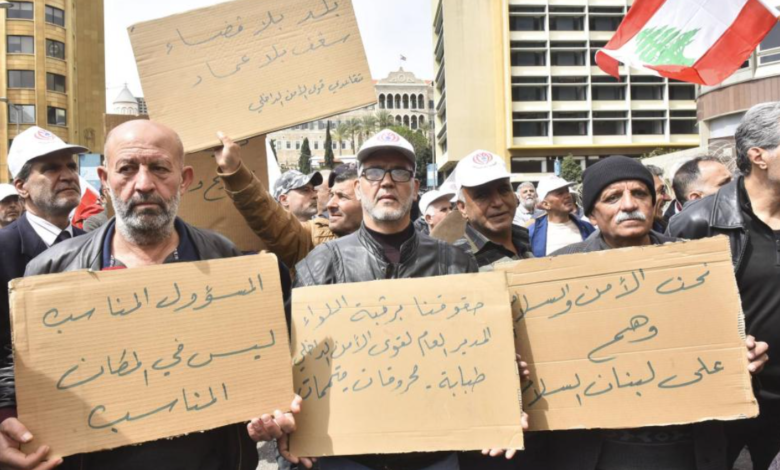 بلد بلا قضاء
سقف بلا عماد
متقاعدي قوى الأمن الداخلي
المسؤول المناسب
ليس في المكان
المناسب
حقوقنا برقبة اللواء
المدير العام لقوى الأمن الداخلي
طبابة - محروقات - متممات
نحن الأمن والسلام
وهم
على لبنان السلام